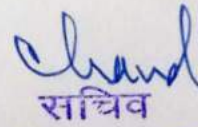 Chand
सचिव